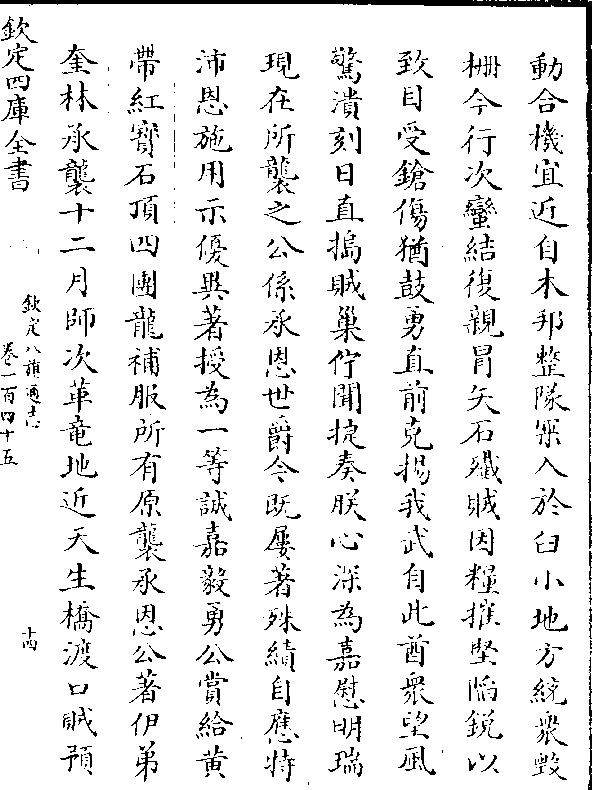 動合機宜近自木邦整隊深入於臼小地方統衆毀
柵今行次蠻結復親冒矢石殲賊因糧摧堅陷鋭以
致目受鎗傷猶鼓勇直前克揚我武自此酋衆望風
驚潰刻日直搗賊巢佇聞捷奏朕心深為嘉慰明瑞
現在所襲之公係承恩世爵今既屢著殊績自應特
沛恩施用示優異著授為一等誠嘉毅勇公賞給黄
帶紅寳石頂四團龍補服所有原襲承恩公著伊弟
奎林承襲十二月師次革竜地近天生橋渡口賊預
欽定四庫全書
欽定八旗通志
卷一百四十五
十四